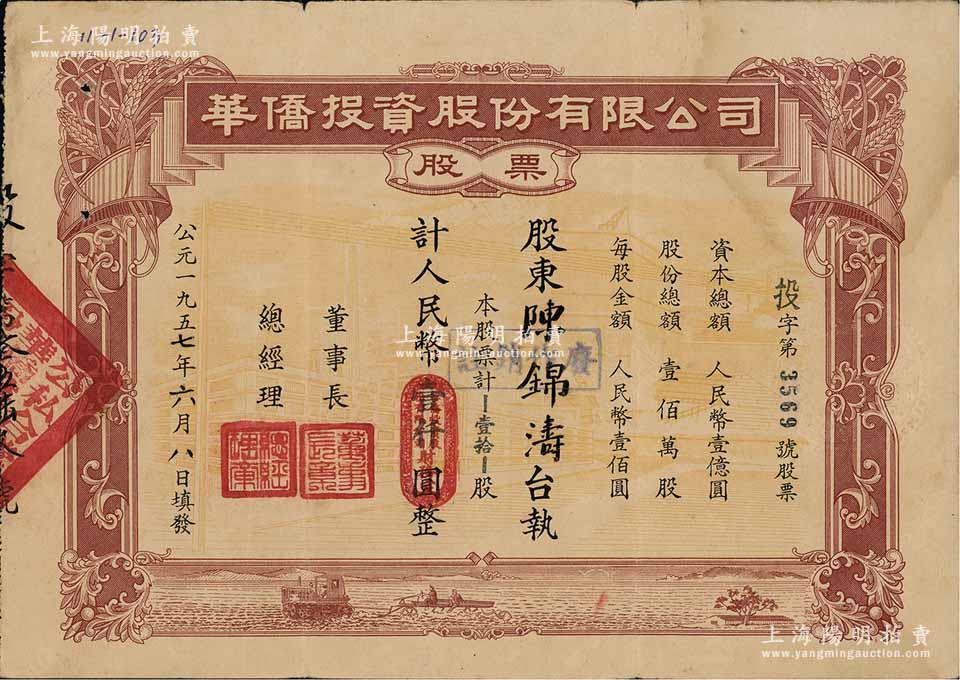 上海陽明拍賣
www.yangmingauction.com
華僑投資股份有限公司
股票
投字第3569號股票
資本總額 人民幣壹億圓
股份總額 壹佰萬股
每股金額 人民幣壹佰圓
股東陳錦濤台執
本股票計壹拾股
計人民幣壹仟圓整
董事長
總經理
公元一九五七年六月八日填發
上海陽明拍賣
www.yangmingauction.com
上海陽明拍賣
www.yangmingauction.com